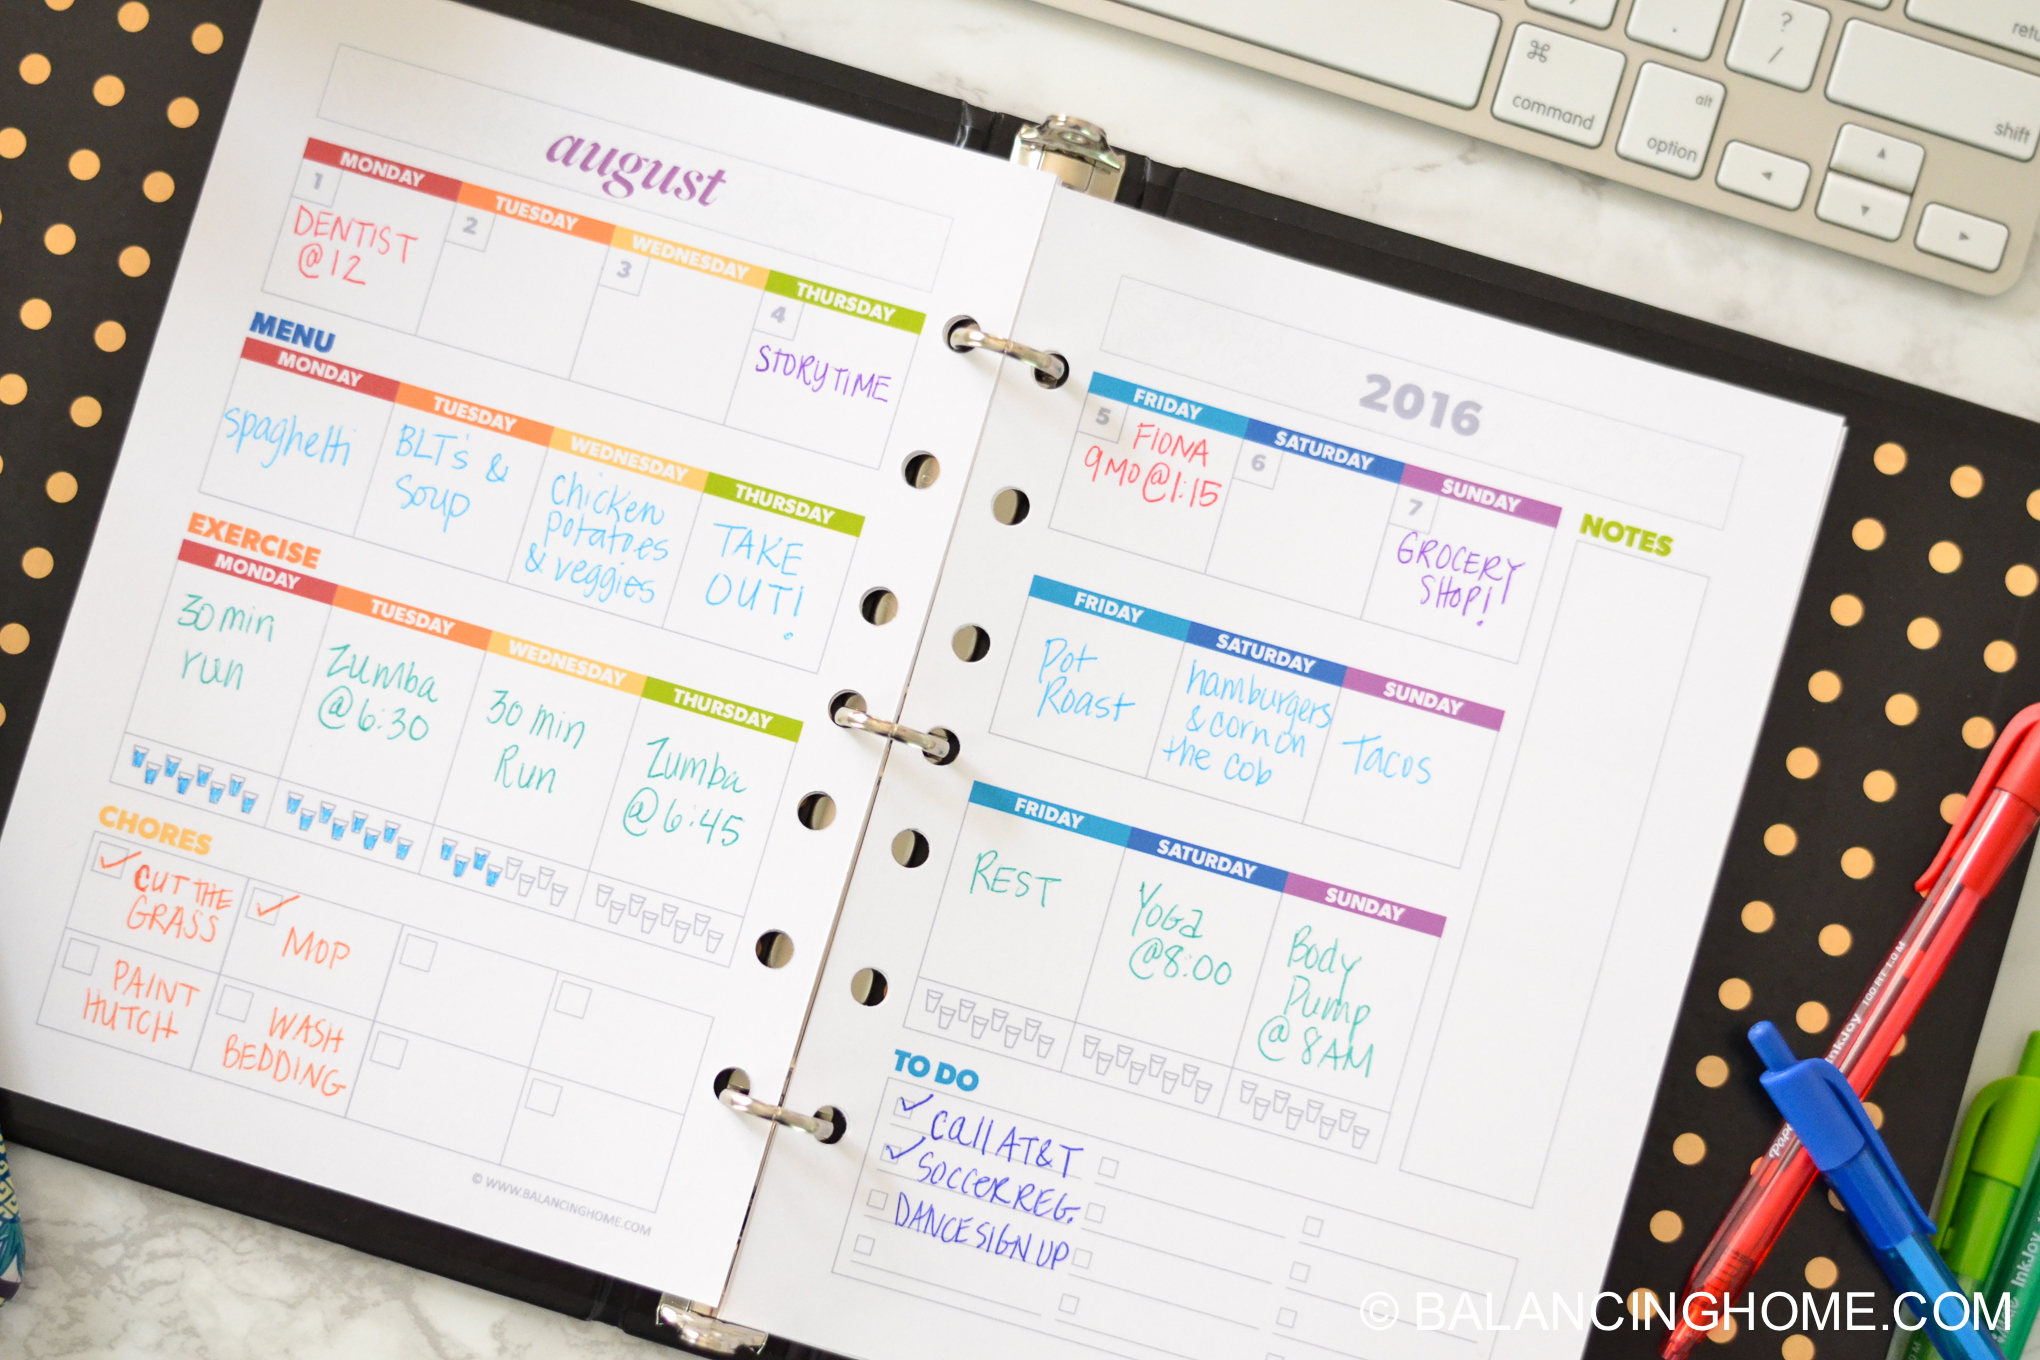 august
MONDAY TUESDAY WEDNESDAY THURSDAY
1 2 3 4
DENTIST
@12
STORYTIME
MENU
MONDAY TUESDAY WEDNESDAY THURSDAY
spaghetti
BLT's &
Soup
Chicken
potatoes
& veggies
TAKE
OUT!
EXERCISE
MONDAY TUESDAY WEDNESDAY THURSDAY
30 min
run
Zumba
@6:30
30 min
Run
Zumba
@6:45
CHORES
CUT THE
GRASS
MOP
PAINT
HUTCH
WASH
BEDDING
© WWW.BALANCINGHOME.COM
2016
FRIDAY SATURDAY SUNDAY
5 6 7
FIONA
9MO@1:15
GROCERY
SHOP!
NOTES
FRIDAY SATURDAY SUNDAY
Pot
Roast
hamburgers
& corn on
the cob
Tacos
FRIDAY SATURDAY SUNDAY
REST
Yoga
@8:00
Body
Pump
@8AM
TO DO
Call AT&T
SOCCER REG.
DANCE SIGN UP
command
alt
option
?
/
.
shift
retu
⌘
InkJoy 100 RT 1.0 M
Pap
InkJoy
© BALANCINGHOME.COM